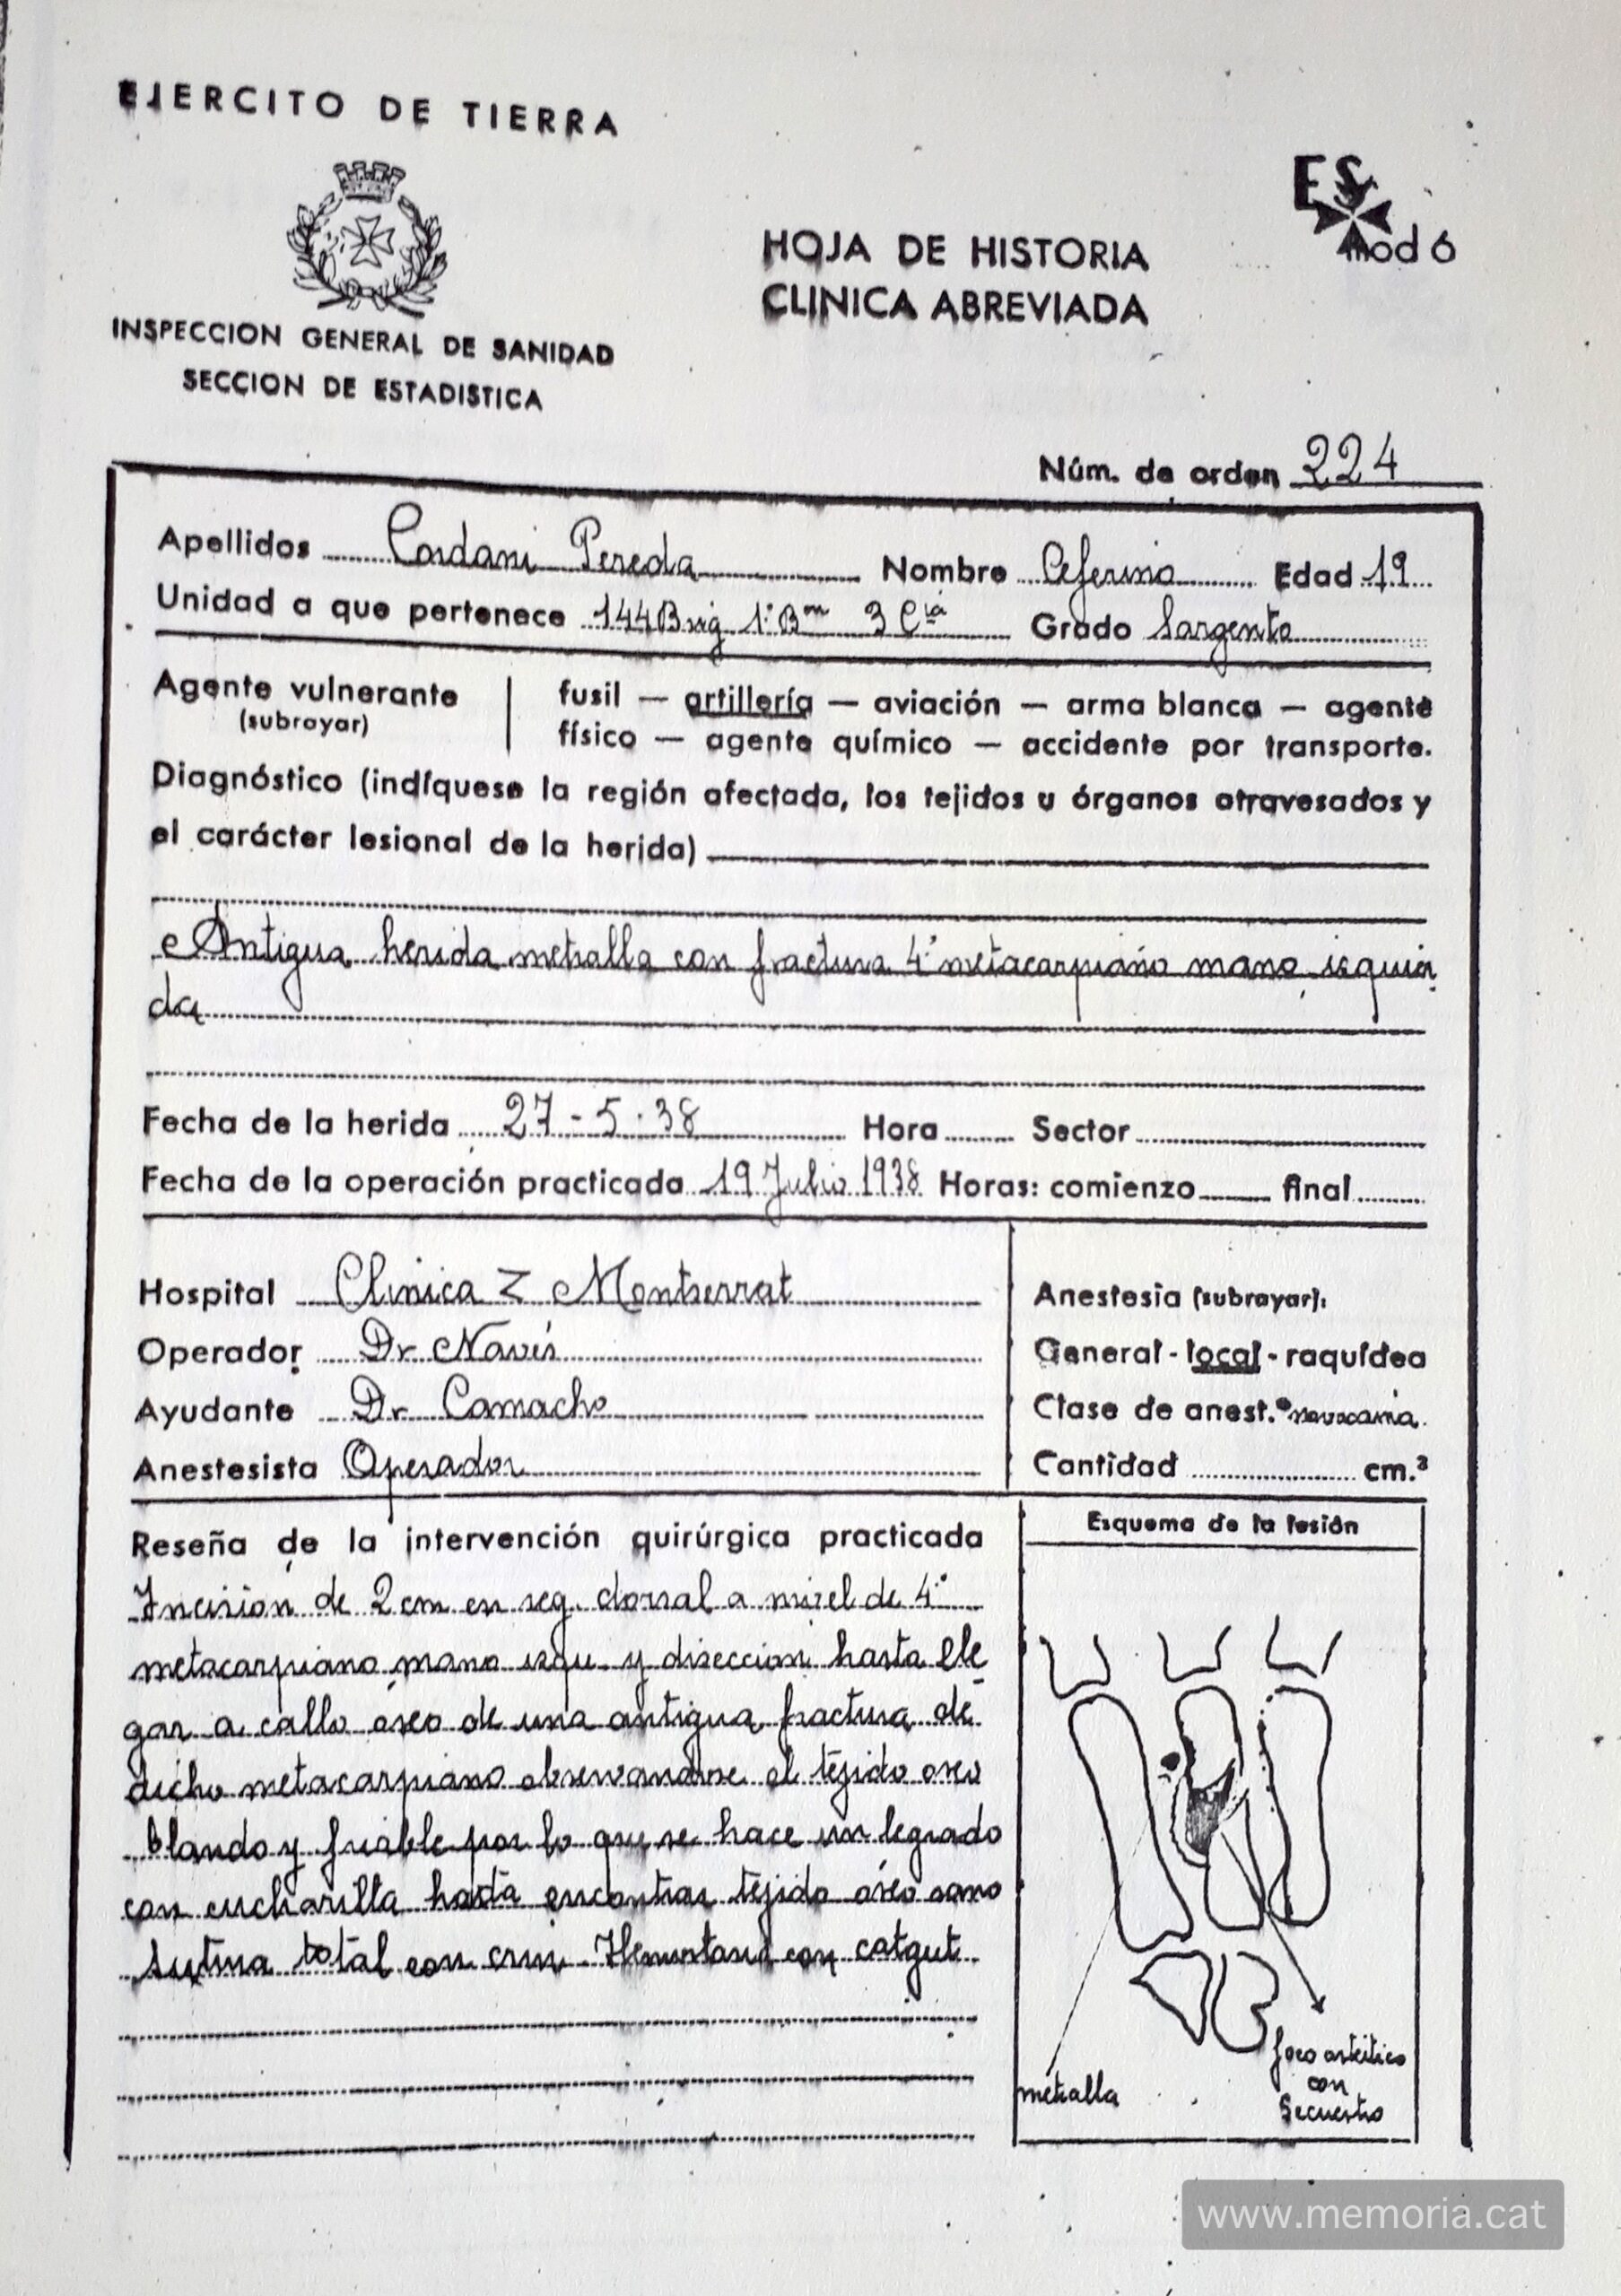 EJERCITO DE TIERRA
INSPECCION GENERAL DE SANIDAD
SECCION DE ESTADISTICA
HOJA DE HISTORIA
CLINICA ABREVIADA
ES
mod 6
Núm. de orden 224
Apellidos Cordani Pereda Nombre Ceferino Edad 19
Unidad a que pertenece 144 Brig 1º Bon 3 Cia Grado Sargento
Agente vulnerante
(subrayar)
fusil — artillería — aviación — arma blanca — agente
físico — agente químico — accidente por transporte.
Diagnóstico (indíquese la región afectada, los tejidos u órganos atravesados y
el carácter lesional de la herida)
Antigua herida metralla con fractura 4º metacarpiano mano isquier
da
Fecha de la herida 27-5-38 Hora Sector
Fecha de la operación practicada 19 Julio 1938 Horas: comienzo final
Hospital Clinica Z Montserrat
Operador Dr Navés
Ayudante Dr Camacho
Anestesista Operador
Anestesia (subrayar):
General - local - raquídea
Clase de anest.ª novocaina
Cantidad cm.³
Reseña de la intervención quirúrgica practicada
Incision de 2 cm en reg. dorsal a nivel de 4º
metacarpiano mano izqu. y diseccion hasta lle
gar a callo óseo de una antigua fractura de
dicho metacarpiano observandose el tejido oseo
blando y friable por lo que se hace un legrado
con cucharilla hasta encontrar tejido óseo sano
Sutura total con crin. Hemostasis con catgut
Esquema de la lesión
metralla
foco osteitico
con
Secuestro
www.memoria.cat